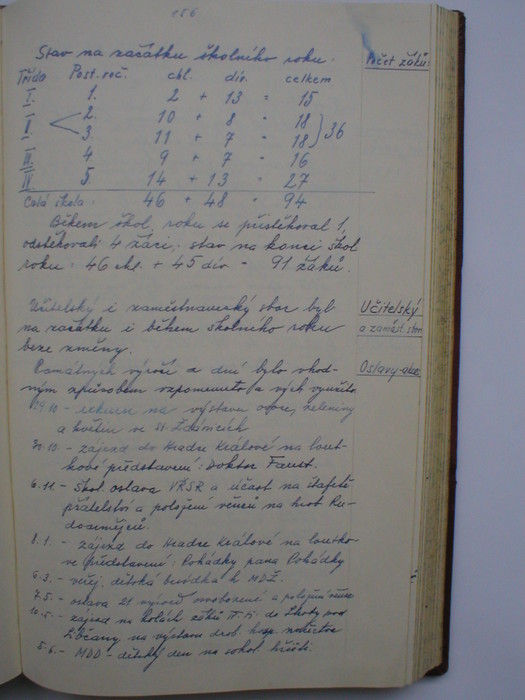 156
Stav na začátku školního roku.
Počet žáků:
Třída Post. roč. chl. div. celkem
I. 1. 2 + 13 = 15
II. 2. 10 + 8 = 18
3. 11 + 7 = 18 } 36
III. 4 9 + 7 = 16
5. 14 + 13 = 27
Celá škola: 46 + 48 = 94
Během škol. roku se přistěhoval 1,
odstěhovali 4 žáci; stav na konci škol.
roku: 46 chl. + 45 div = 91 žáků.
Učitelský i zaměstnanecký sbor byl
na začátku i během školního roku
beze změny.
Učitelský
a zaměst. sbor
Památných výročí a dní bylo vhod-
ným způsobem vzpomenuto a využito
Oslavy-akce
- exkurse na výstavu ovoce, zeleniny
a květin ve St. Ždánicích
- zájezd do Hradce Králové na lout-
kové představení: Doktor Faust.
6.11. - Škol. oslava VŘSR a účast na štafetě
přátelství a položení věnců na hrob Ru-
doarmějců.
- zájezd do Hradce Králové na loutko-
vé představení: Pohádky pana Pohádky
6.3. - veřej. dětská besídka k MDŽ.
7.5. - oslava 21 výročí osvobození a položení věnce
10.5. - zájezd na kolách žáků do Lhoty pod
Libčany na výstavu drob. hosp. zvířectva
5.6. - MDD - dětský den na sokol. hřišti.